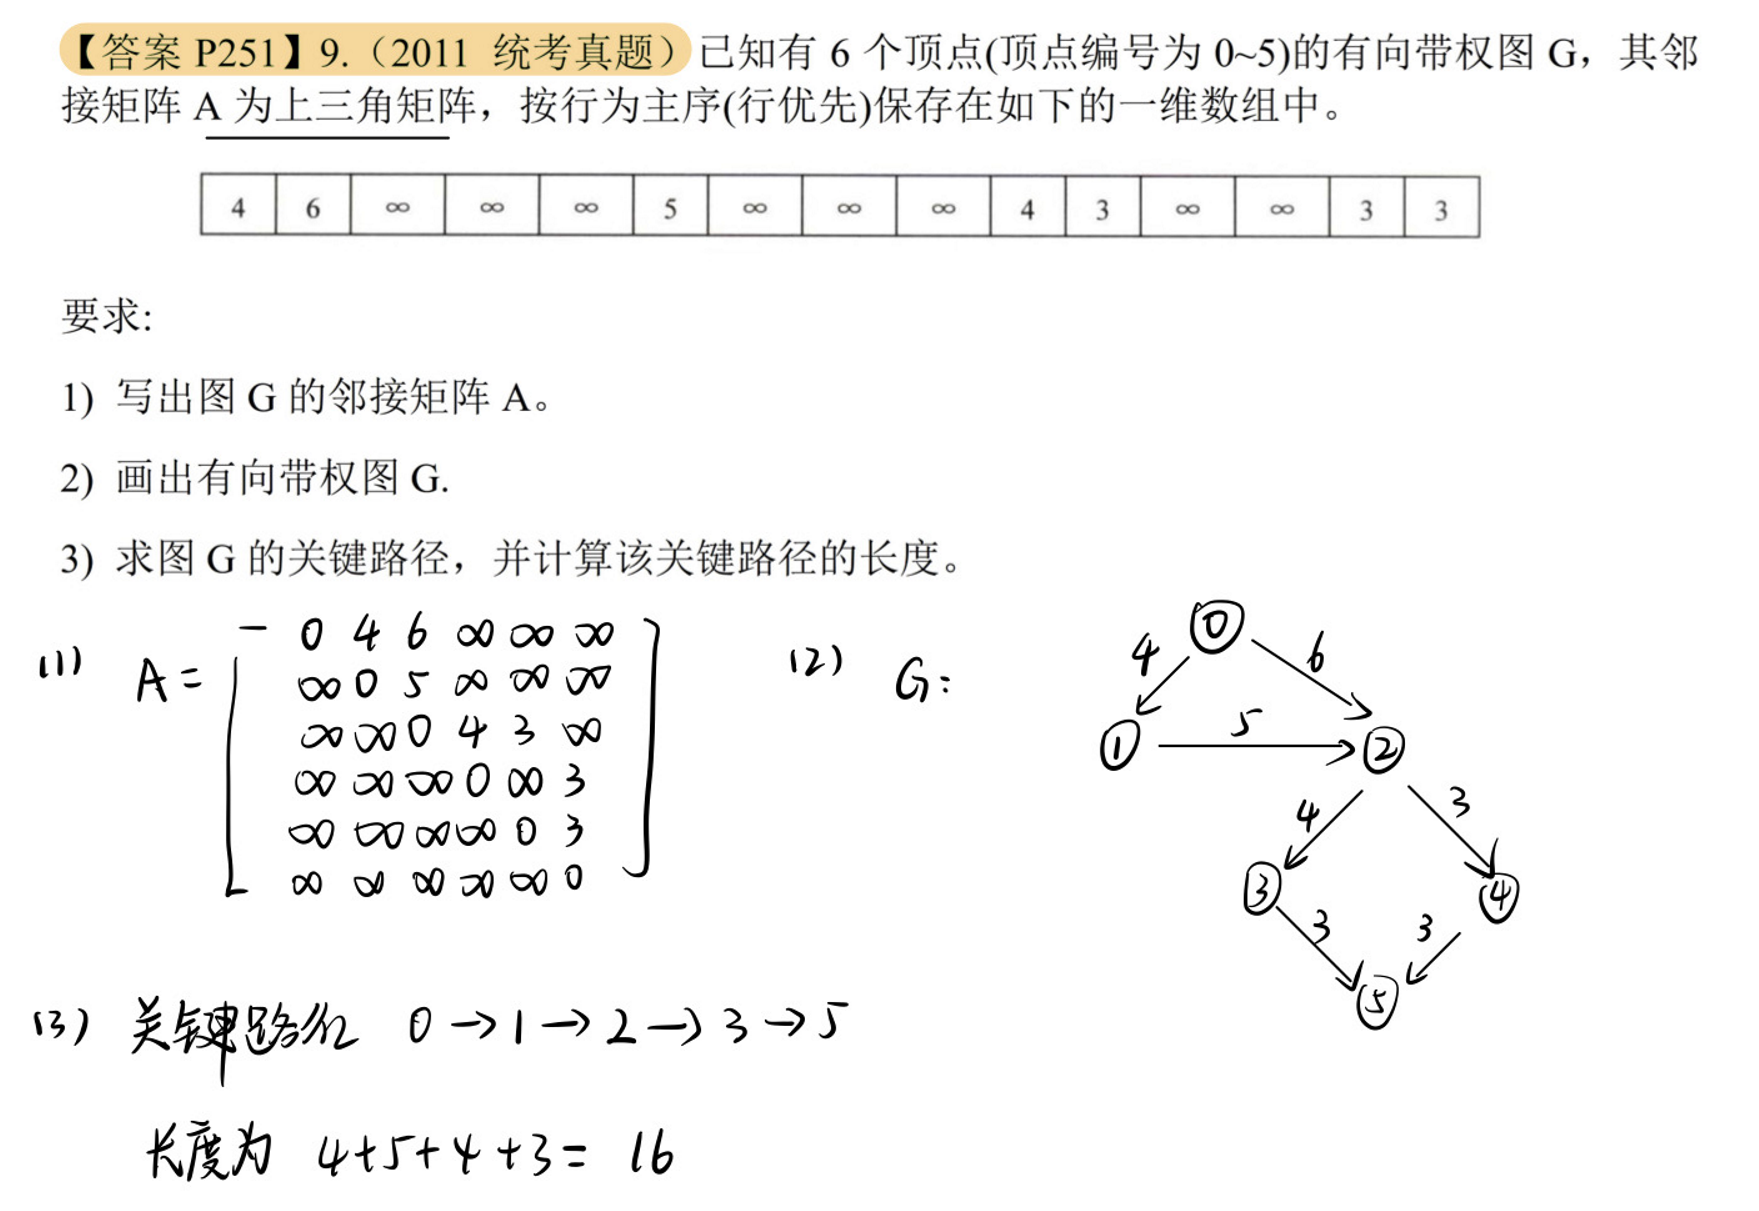 【答案 P251】9.（2011 统考真题）已知有 6 个顶点(顶点编号为 0~5)的有向带权图 G，其邻
接矩阵 A 为上三角矩阵，按行为主序(行优先)保存在如下的一维数组中。
4 6 ∞ ∞ ∞ 5 ∞ ∞ ∞ 4 3 ∞ ∞ 3 3
要求:
1) 写出图 G 的邻接矩阵 A。
2) 画出有向带权图 G.
3) 求图 G 的关键路径，并计算该关键路径的长度。
(1) A=
0 4 6 ∞ ∞ ∞
∞ 0 5 ∞ ∞ ∞
∞ ∞ 0 4 3 ∞
∞ ∞ ∞ 0 ∞ 3
∞ ∞ ∞ ∞ 0 3
∞ ∞ ∞ ∞ ∞ 0
(2) G:
0
4 6
1 5 2
4 3
3 4
3 3
5
(3) 关键路径 0→1→2→3→5
长度为 4+5+4+3= 16